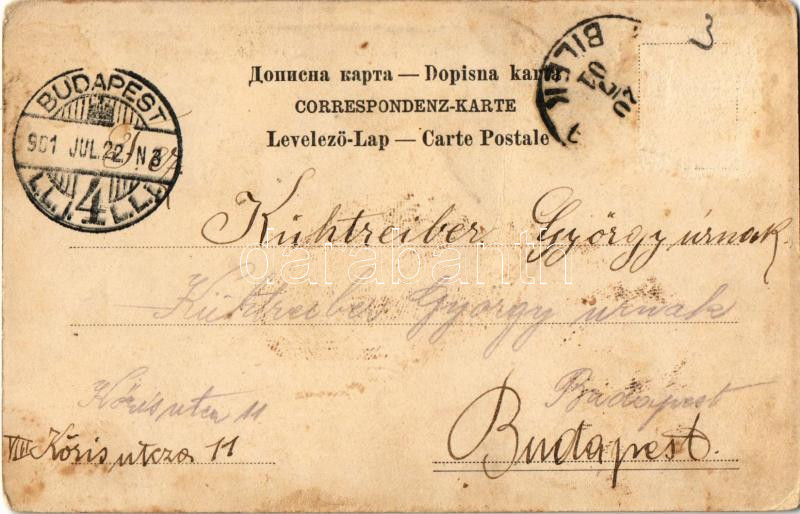 3
BILEK
Дописна карта — Dopisna karta
CORRESPONDENZ-KARTE
Levelező-Lap — Carte Postale
BUDAPEST
901 JUL. 22 N 3
4
Kühtreiber György úrnak
Kühtreiber György urnak
Kőris utca 11
Budapest
VIII Kőris utcza 11
Budapest.
databanth